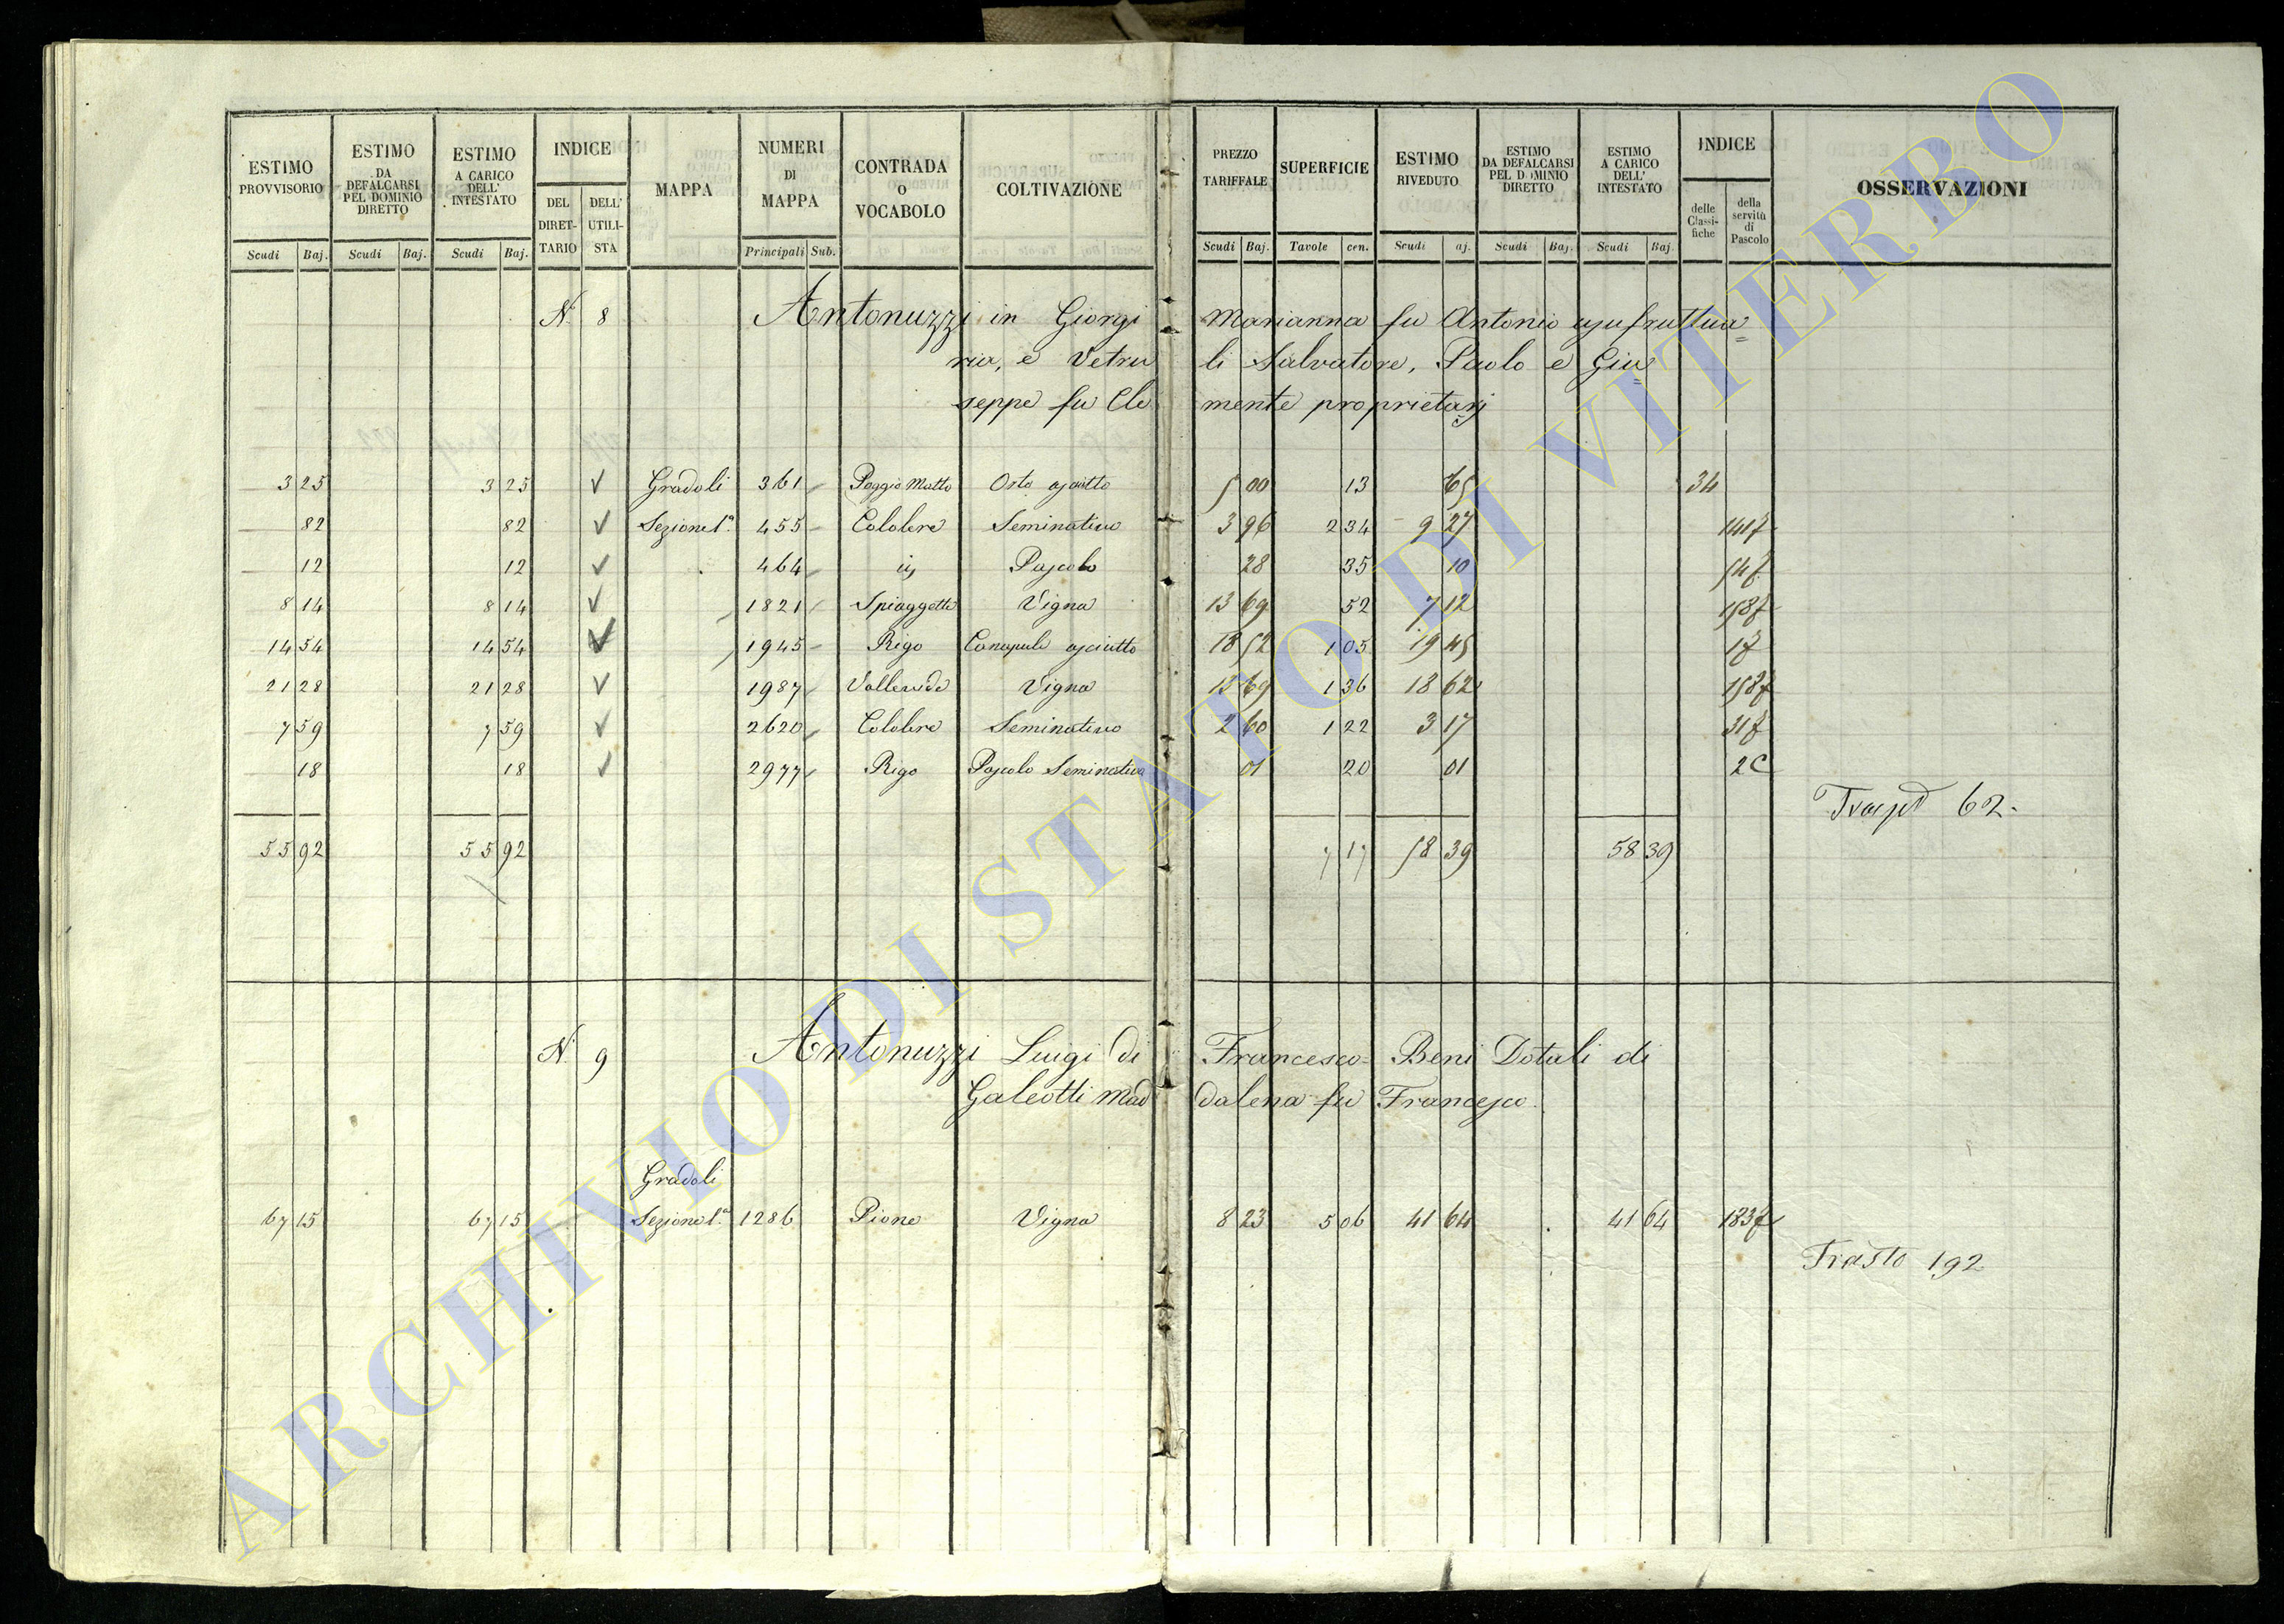 ESTIMO PROVVISORIO | ESTIMO DA DEFALCARSI PEL DOMINIO DIRETTO | ESTIMO A CARICO DELL' INTESTATO | INDICE | MAPPA | NUMERI DI MAPPA | CONTRADA O VOCABOLO | COLTIVAZIONE | PREZZO TARIFFALE | SUPERFICIE | ESTIMO RIVEDUTO | ESTIMO DA DEFALCARSI PEL DOMINIO DIRETTO | ESTIMO A CARICO DELL' INTESTATO | INDICE | OSSERVAZIONI
DEL DIRETTARIO | DELL' UTILISTA | delle Classifiche | della servitù di Pascolo
Scudi | Baj. | Scudi | Baj. | Scudi | Baj. | Principali | Sub. | Scudi | Baj. | Tavole | cen. | Scudi | aj. | Scudi | Baj. | Scudi | Baj.
N. 8 Antonuzzi in Giorgi Marianna fu Antonio usufruttua=
ria, e Vetru li Salvatore, Paolo e Giu=
seppe fu Cle mente proprietarj
3 25 | 3 25 | ✓ | Gradoli | 361 | Poggio Matto | Orto asciutto | 5 00 | 13 | 65 | 34
82 | 82 | ✓ | Sezione 1.ª | 455 | Colobre | Seminativo | 3 96 | 2 34 | 9 27 | 141f
12 | 12 | ✓ | 464 | ivi | Pascolo | 28 | 35 | 10 | 54f
8 14 | 8 14 | ✓ | 1821 | Spiaggette | Vigna | 13 69 | 52 | 7 12 | 158f
14 54 | 14 54 | ✓ | 1945 | Rigo | Canapule asciutto | 18 52 | 1 05 | 19 45 | 1f
21 28 | 21 28 | ✓ | 1987 | Vigna | 13 69 | 1 36 | 18 62 | 158f
7 59 | 7 59 | ✓ | 2620 | Colobre | Seminativo | 2 60 | 1 22 | 3 17 | 31f
18 | 18 | ✓ | 2977 | Rigo | Pascolo Seminativo | 01 | 20 | 01 | 2C
62.
55 92 | 55 92 | 7 17 | 58 39 | 58 39
N. 9 Antonuzzi Luigi di Francesco Beni Dotali di
Galeotti Mad dalena fu Francesco
Gradoli
67 15 | 67 15 | Sezione 1.ª | 1286 | Pione | Vigna | 8 23 | 5 06 | 41 64 | 41 64 | 183f
Trasto 192
ARCHIVIO DI STATO DI VITERBO